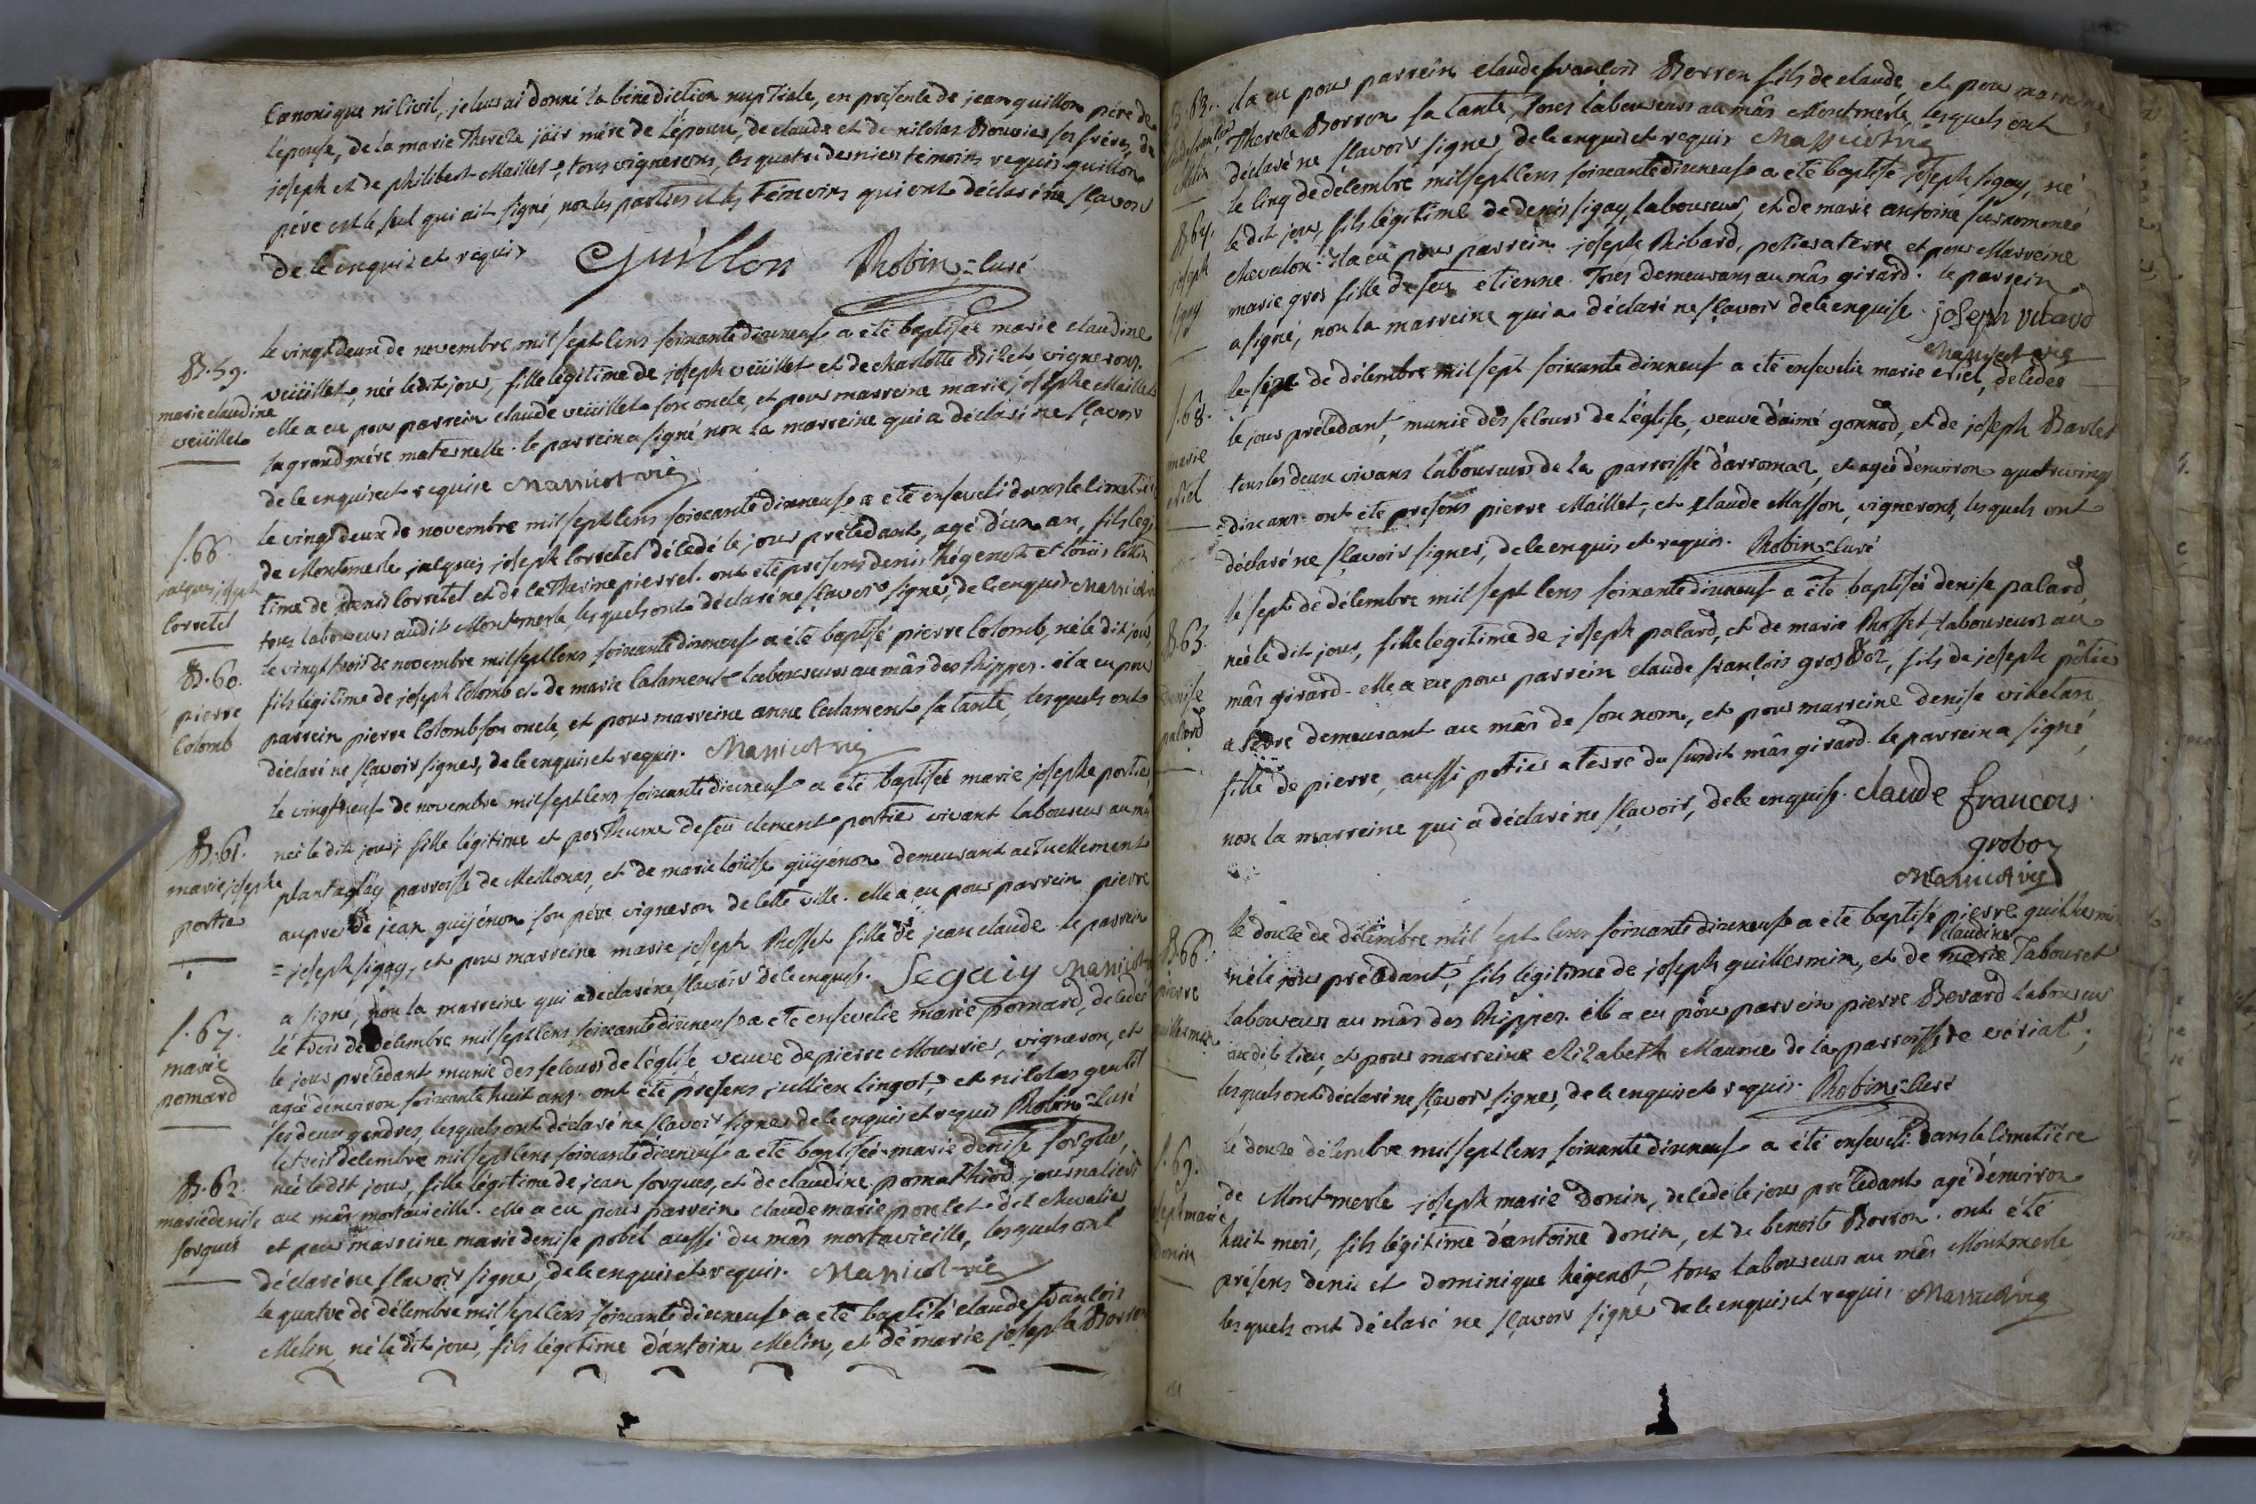 Canonique ni Civil, je leurs ai donné la bénédiction nuptiale, en présence de jean quillon père de
l'épouse, de la marie Thereze jair mére de L'époux, de claude et de nicolas Bouvier ses fréres, de
joseph et de philibert Maillet, tous vignerons, les quatre derniers témoins requis. quillon
pére est le seul qui ait signé, non les parties et les témoins qui ont déclaré ne sçavoir
de ce enquis et requis Guillon Robin = Curé
B. 59.
marie claudine
veüillet
le vingt deux de novembre mil sept cens soixante dixneuf a été baptisée marie claudine
veüillet, née ledit jour, fille légitime de joseph veüillet et de charlotte Bilet vignerons.
elle a eu pour parrein claude veüillet son oncle, et pour marreine marie josephe Maillet
sa grand mére maternelle. le parrein a signé non la marreine qui a déclaré ne sçavoir
de ce enquise et requise Manicot vic
S. 66.
jacques joseph
Corretel
le vingt deux de novembre mil sept cens soixante dixneuf a été enseveli dans le cimetière
de Montmerle jacques joseph Corretel décédé le jour précédant, agé d'un an, fils légi
time de denis Corretel et de Catherine pierrel. ont été présens denis hégenot et
tous laboureurs audit Montmerle, lesquels ont déclaré ne sçavoir signer, de ce enquis Manicot vic
B. 60.
pierre
Colomb
le vingt trois de novembre mil sept cens soixante dixneuf a été baptisé pierre Colomb, né le dit jour,
fils légitime de joseph Colomb et de marie Calament laboureurs au mâs des Rippes. il a eu pour
parrein pierre Colomb son oncle, et pour marreine anne Calament sa tante, lesquels ont
déclaré ne sçavoir signer, de ce enquis et requis. Manicot vic
B. 61.
marie josephe
portier
le vingt neuf de novembre mil sept cens soixante dixneuf a été baptisée marie josephe portier,
née le dit jour, fille légitime et posthume de feu clement portier vivant laboureur au mâs
plantaglay parroisse de Meillonas, et de marie loüise guyénon demeurant actuellement
aupres de jean guyénon son pére vigneron de cette ville. elle a eu pour parrein pierre
= joseph sigay, et pour marreine marie joseph Rosset fille de jean claude. le parrein
a signé, non la marreine qui a declaré ne sçavoir de ce enquise. Segaiy Manicot vic
S. 67.
marie
pomard
le trois de décembre mil sept cens soixante dixneuf a été ensevelie marie pomard, décédée
le jour précédant munie des secours de l'église, veuve de pierre Mourrier, vigneron, et
agée d'environ soixante huit ans. ont été présens, jullien lingot, et nicolas gentil
ses deux gendres, lesquels ont déclaré ne sçavoir signer de ce enquis et requis Robin = Curé
B. 62.
marie denise
sorgues
le trois décembre mil sept cens soixante dixneuf a été baptisée marie denise sorgues,
née le dit jour, fille légitime de jean sorgues, et de claudine pomathiod journaliers
au mâs mortavieille. elle a eu pour parrein claude marie poncet dit chevalier
et pour marreine marie denise pobel aussi du mâs mortavieille, lesquels ont
déclaré ne sçavoir signer de ce enquis et requis. Manicot vic
le quatre de décembre mil sept cens soixante dixneuf a été baptisé claude françois
Melin, né le dit jour, fils légitime d'antoine Melin, et de marie josephe Borron
B. 63.
Melin
il a eu pour parrein claude françois Borron fils de claude, et pour marreine
Thereze Borron sa tante, tous laboureurs au mâs Montmerle, lesquels ont
déclaré ne sçavoir signer de ce enquis et requis Manicot vic
B. 64.
joseph
sigay
le cinq de décembre mil sept cens soixante dixneuf a été baptisé joseph sigay, né
le dit jour, fils légitime de denis sigay, laboureur, et de marie antoine surnommé
chevalon. il a eu pour parrein joseph Ribard, potier a terre et pour Marreine
marie gros fille de feu etienne. Tous demeurans au mâs girard. le parrein
a signé, non la marreine qui a déclaré ne sçavoir de ce enquise. joseph
Manicot vic
S. 68.
marie
le size de décembre mil sept soixante dixneuf a été ensevelie marie, décédée
le jour précédant, munie des secours de l'église, veuve d'aimé gonnod, et de joseph Barlet
tous les deux vivans laboureurs de la parroisse d'arromas, et agée d'environ quatrevingt
= dix ans. ont été présens pierre Maillet, et claude Masson, vignerons, lesquels ont
déclaré ne sçavoir signer, de ce enquis et requis. Robin = Curé
B. 65.
denise
palard
le sept de décembre mil sept cens soixante dixneuf a été baptisée denise palard,
née le dit jour, fille légitime de joseph palard, et de marie Rosset, laboureurs au
mâs girard. elle a eu pour parrein claude françois gros Boz, fils de joseph potier
a terre demeurant au mâs de son nom, et pour marreine denise
fille de pierre, aussi potier a terre du susdit mâs girard. le parrein a signé,
non la marreine qui a déclaré ne sçavoir, de ce enquise. claude francois
groboz
Manicot vic
B. 66.
pierre
guillermin
le douze de décembre mil sept cens soixante dixneuf a été baptisé pierre guillermin
né le jour précédant, fils légitime de joseph guillermin, et de marie claudine Tabouret
laboureurs au mâs des Rippes. il a eu pour parrein pierre Berard laboureur
au dit lieu, et pour marreine Elizabeth Maume de la parroisse de vériat;
lesquels ont déclaré ne sçavoir signer, de ce enquis et requis. Robin = Curé
S. 69.
joseph marie
donin
le douze décembre mil sept cens soixante dixneuf a été enseveli dans le cimetière
de Montmerle joseph marie Donin, décédé le jour précédant agé d'environ
huit mois, fils légitime d'antoine donin, et de benoite Borron. ont été
présens denis et dominique hégenot, tous laboureurs au mâs Montmerle
lesquels ont déclaré ne sçavoir signer de ce enquis et requis Manicot vic